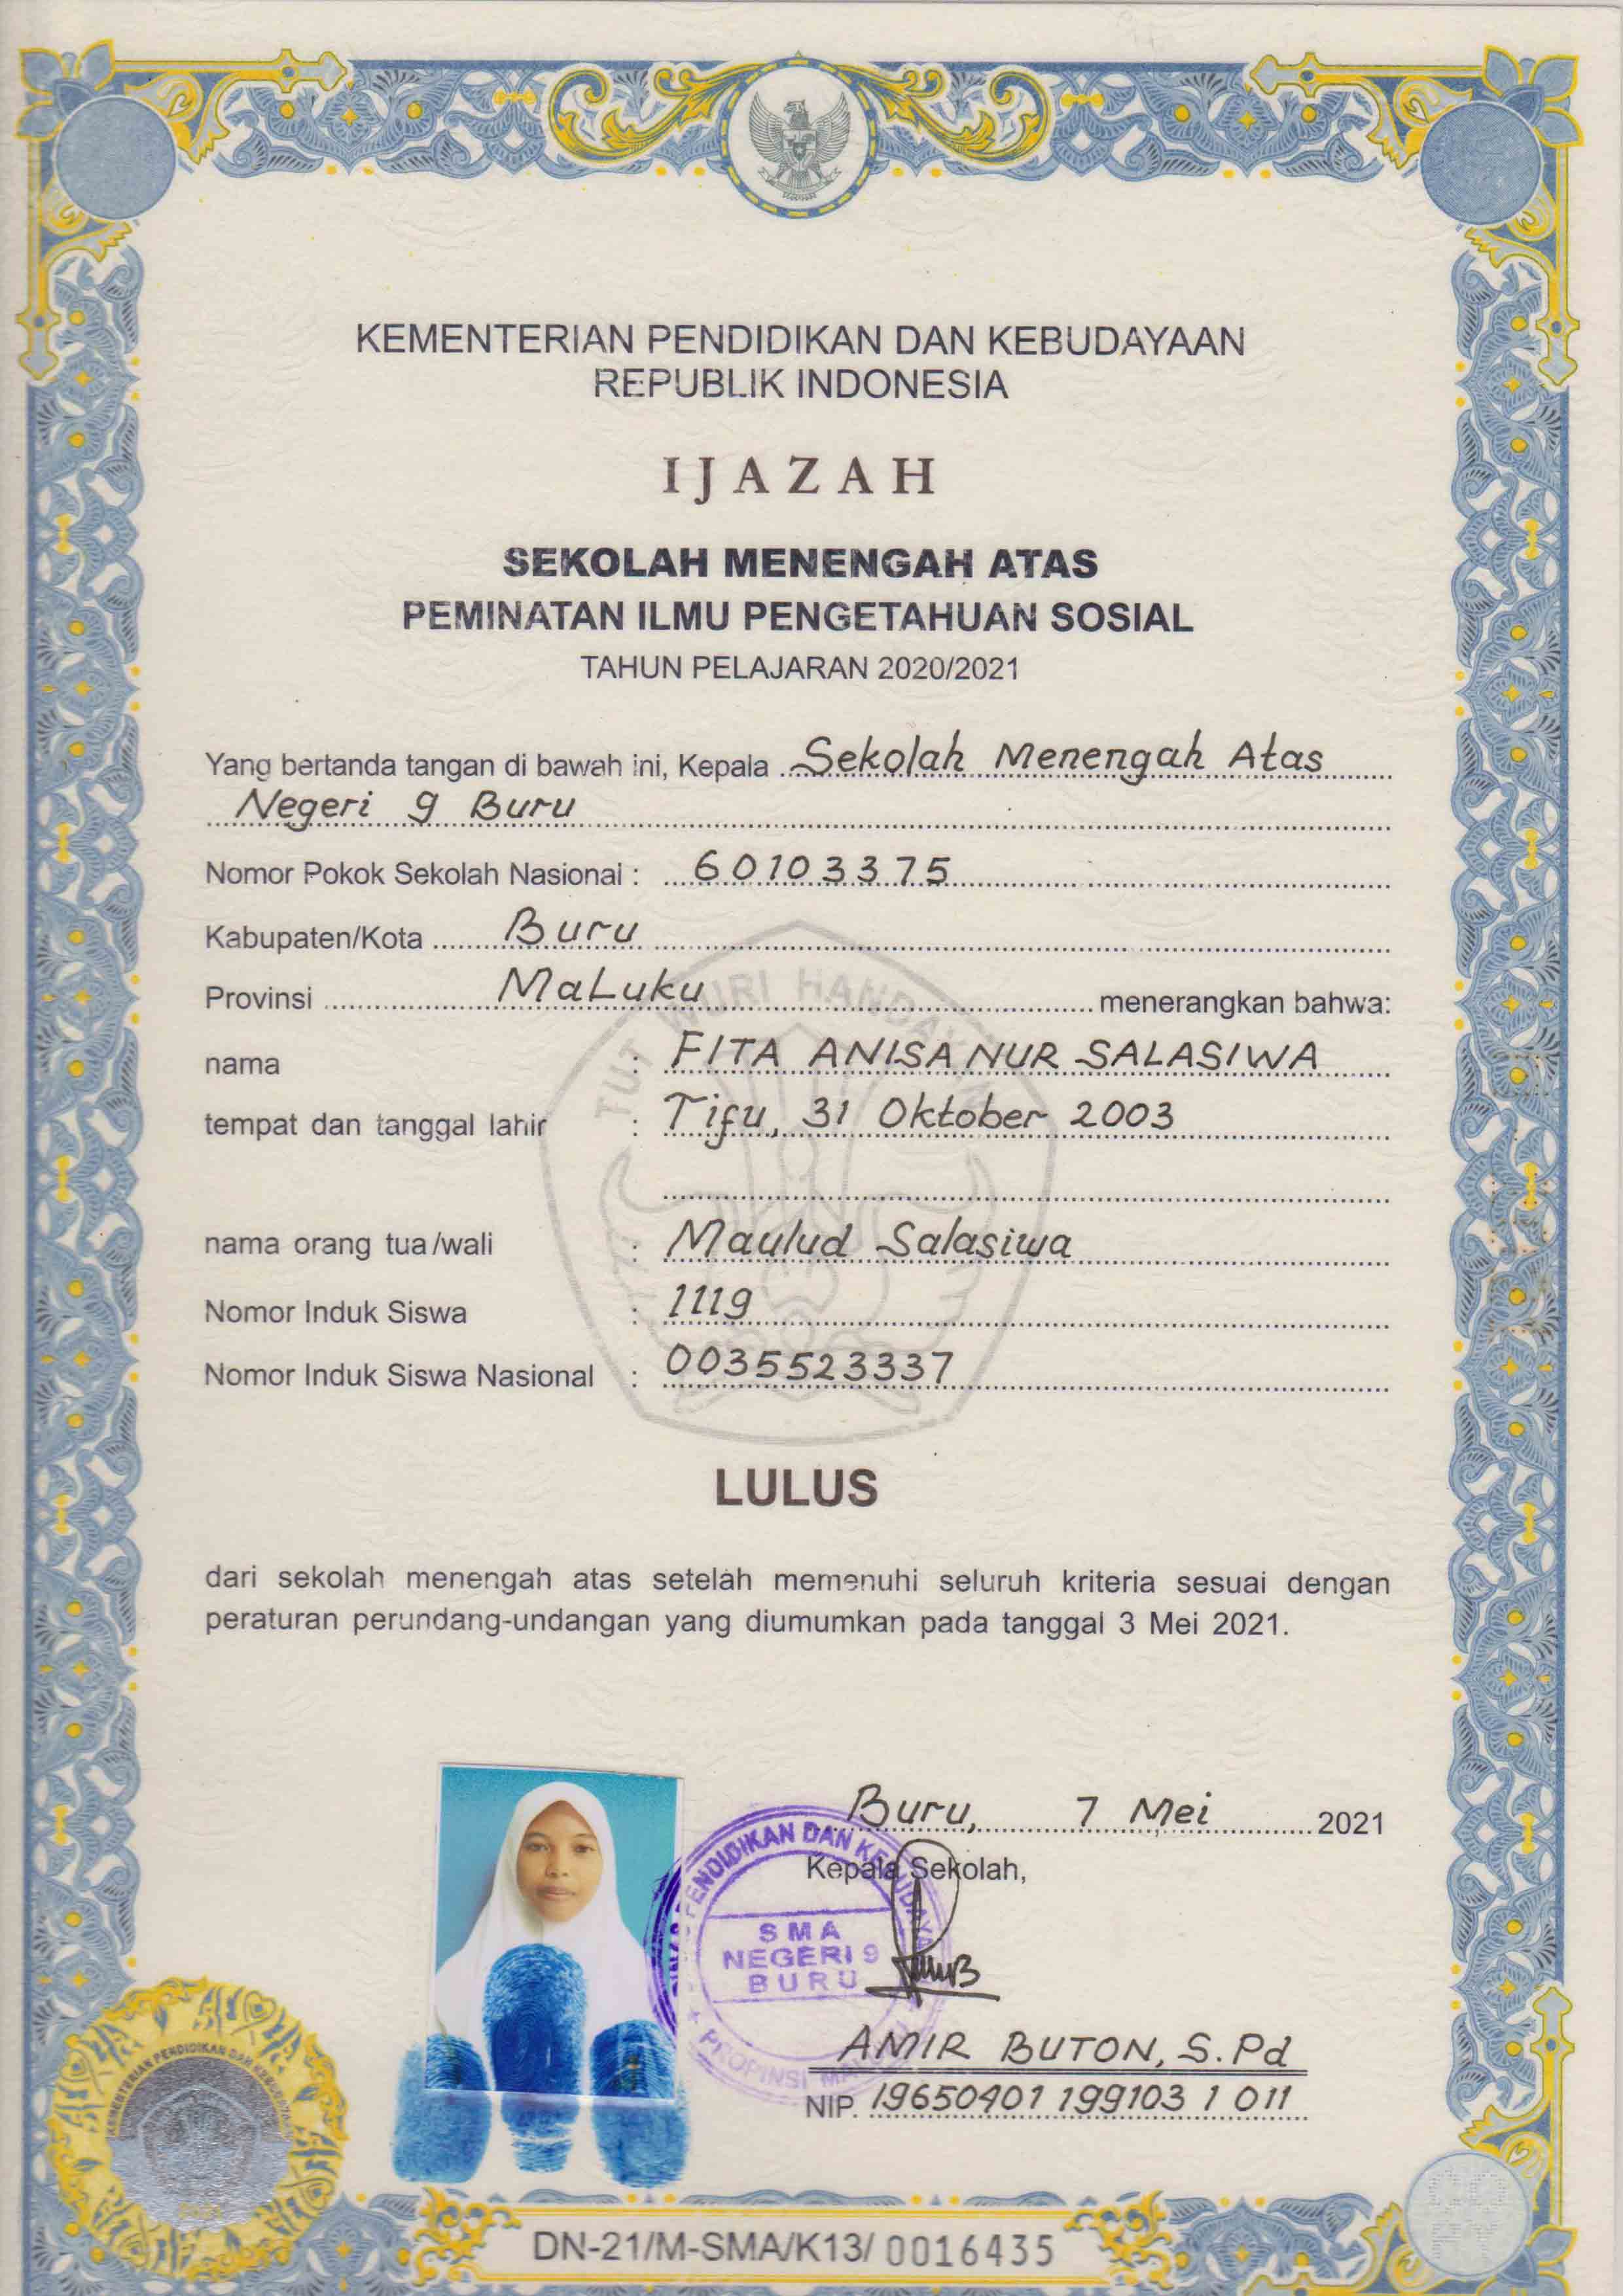 KEMENTERIAN PENDIDIKAN DAN KEBUDAYAAN
REPUBLIK INDONESIA
IJAZAH
SEKOLAH MENENGAH ATAS
PEMINATAN ILMU PENGETAHUAN SOSIAL
TAHUN PELAJARAN 2020/2021
Yang bertanda tangan di bawah ini, Kepala Sekolah Menengah Atas
Negeri 9 Buru
Nomor Pokok Sekolah Nasional : 60103375
Kabupaten/Kota Buru
Provinsi Maluku menerangkan bahwa:
nama : FITA ANISA NUR SALASIWA
tempat dan tanggal lahir : Tifu, 31 Oktober 2003
nama orang tua/wali : Maulud Salasiwa
Nomor Induk Siswa : 1119
Nomor Induk Siswa Nasional : 0035523337
TUT WURI HANDAYANI
LULUS
dari sekolah menengah atas setelah memenuhi seluruh kriteria sesuai dengan
peraturan perundang-undangan yang diumumkan pada tanggal 3 Mei 2021.
Buru, 7 Mei 2021
Kepala Sekolah,
PENDIDIKAN DAN
SMA
NEGERI 9
BURU
PROPINSI
AMIR BUTON, S.Pd
NIP. 19650401 199103 1 011
KEMENTERIAN PENDIDIKAN DAN KEBUDAYAAN
DN-21/M-SMA/K13/ 0016435